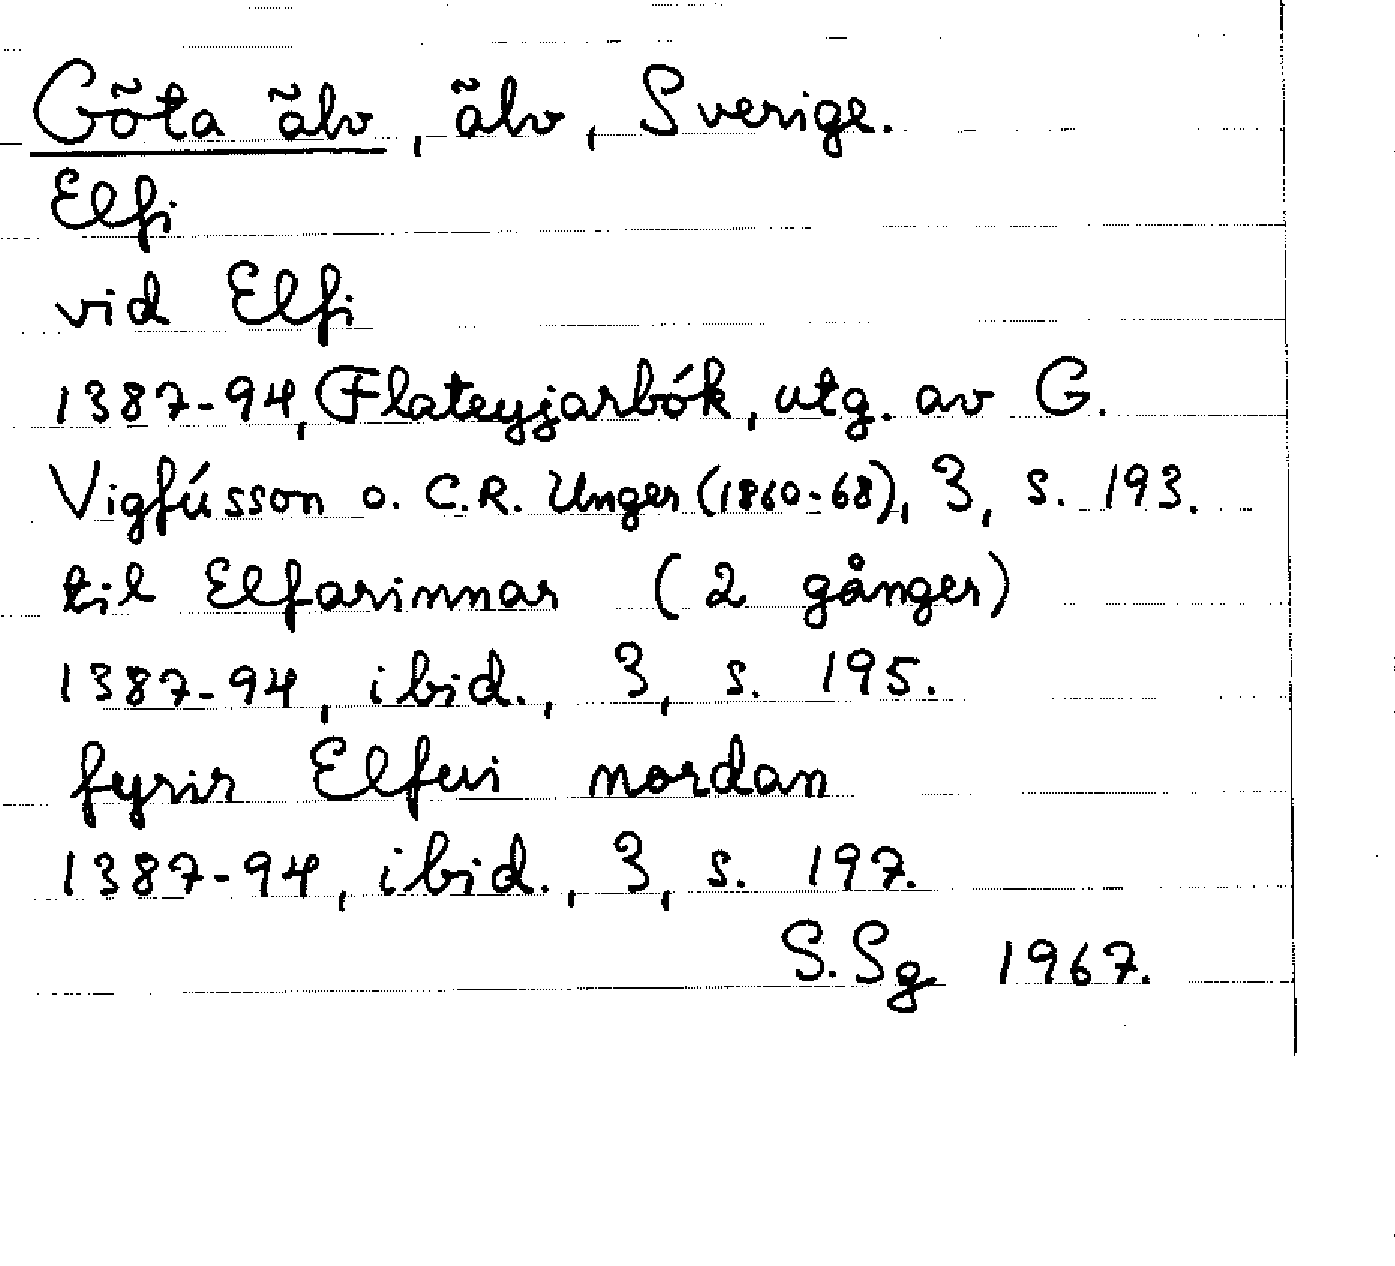 Göta älv, älv, Sverige.
Elfi
vid Elfi
1387-94, Flateyjarbók, utg. av G.
Vigfússon o. C.R. Unger (1860-68), 3, s. 193.
til Elfarinnar (2 gånger)
1387-94, ibid., 3, s. 195.
fyrir Elfui nordan
1387-94, ibid., 3, s. 197.
S.Sg 1967.